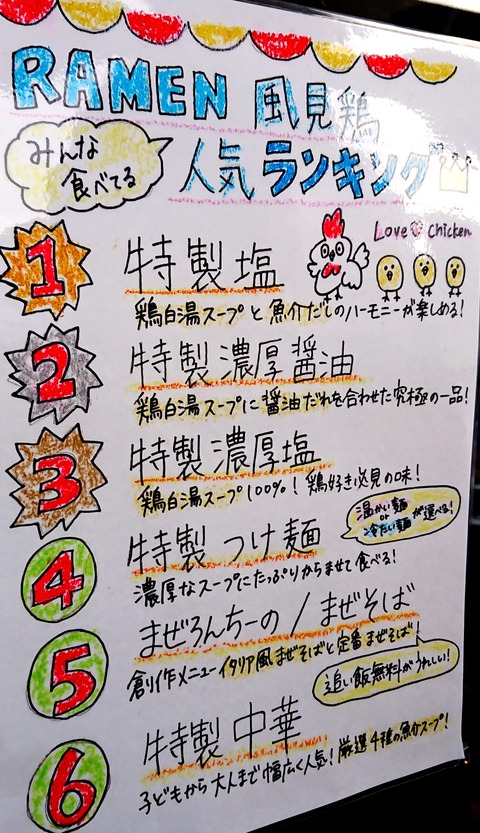 RAMEN 風見鶏
みんな
食べてる
人気ランキング
Love Chicken
1
特製塩
鶏白湯スープと魚介だしのハーモニーが楽しめる!
2
特製濃厚醤油
鶏白湯スープに醤油だれを合わせた究極の一品!
3
特製濃厚塩
鶏白湯スープ100%!鶏好き必見の味!
4
特製つけ麺
温かい麺
or
冷たい麺
が選べる!
濃厚なスープにたっぷりからませて食べる!
5
まぜろんちーの/まぜそば
創作メニューイタリア風まぜそばと定番まぜそば!
追い飯無料がうれしい!
6
特製中華
子どもから大人まで幅広く人気!厳選4種の魚介スープ!